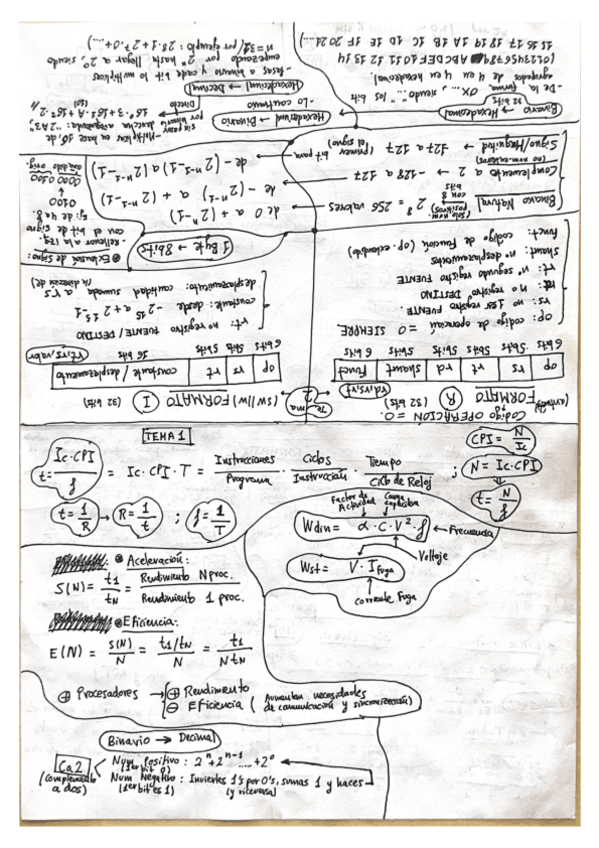 TEMA 1
t = Ic·CPI / f = Ic·CPI·T = Instrucciones / Programa · Ciclos / Instrucción · Tiempo / Ciclo de Reloj ; N = Ic·CPI
CPI = N / Ic
t = N / f
t = 1/R → R = 1/t ; f = 1/T
Factor de Actividad
Carga capacitiva
Wdin = α·C·V²·f ← Frecuencia
Voltaje
Wst = V·I Fuga
Corriente Fuga
Aceleración:
S(N) = t1 / tN = Rendimiento N proc. / Rendimiento 1 proc.
Eficiencia:
E(N) = S(N) / N = t1/tN / N = t1 / N tN
⊕ Procesadores → ⊕ Rendimiento
⊖ Eficiencia (Aumentan necesidades de comunicación y sincronización)
Binario → Decimal
Ca2 (complemento a dos)
Num Positivo: 2^n + 2^n-1 .... + 2^0
(1er bit 0)
Num Negativo: Inviertes 1's por 0's, sumas 1 y haces
(1er bit es 1) (y viceversa)
Tema 2
Código OPERACIÓN = 0.
FORMATO R (32 bits)
rd, rs, rt
op rs rt rd shamt funct
6 bits 5bits 5bits 5bits 5bits 6 bits
op: codigo de operación = 0 SIEMPRE
rs: no 1er registro FUENTE
rt: nº segundo registro FUENTE
rd: nº registro DESTINO
shamt: nº desplazamientos
funct: codigo función (op. extendido)
(sw/lw) FORMATO I (32 bits)
op rs rt constante / desplazamiento
6 bits 5bits 5bits 16 bits
rt, rs, valor
rt: no registro FUENTE / DESTINO
constante: desde -2^15 a + 2^15-1
desplazamiento: cantidad sumada a rs
(la dirección de)
1 Byte → 8 bits
Extensión de Signo:
- Rellenar a la izq. con el bit de signo
Ej: de 4 a 8.
0100
0000 0100
añadido orig.
Binario Natural (solo num. positivos) 2^8 = 256 valores ← de 0 a + (2^n-1)
con 8 bits
Complemento a 2 → -128 a 127 ← de -(2^n-1) a + (2^n-1-1)
(no num. enteros)
Signo/Magnitud → -127 a 127 ← de -(2^n-1-1) a (2^n-1-1)
(Primer bit para el signo)
Binario → Hexadecimal
32 bits
- De la forma 0X..., siendo "" los bit
agrupados de 4 en 4 en hexadecimal
(0123456789 ABCDEF 10 11 12 13 14
15 16 17 18 19 1A 1B 1C 1D 1E 1F 20 21 ....)
Hexadecimal → Binario
- Lo contrario
Hexadecimal → Decimal
- Pasas binario y cada bit lo multiplicas
empezando por 2^n hasta llegar a 2^0, siendo
n=31 (por ejemplo: 2^8·1+2^7·0+....)
Directo
sin pasar por binario
- Multiplicas en base 16, de derecha izquierda: "2A3"
16^0·3+16^1·A+16^2·2
(10)